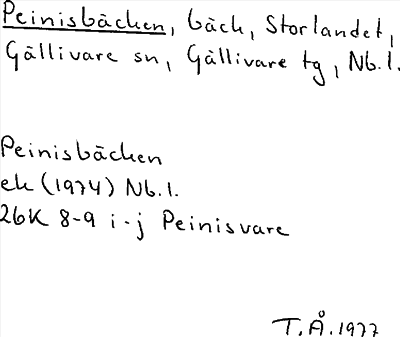 Peinisbäcken, bäck, Storlandet,
Gällivare sn, Gällivare tg, Nb.l.
Peinisbäcken
ek (1974) Nb.l.
26K 8-9 i-j Peinisvare
T.Å.1977